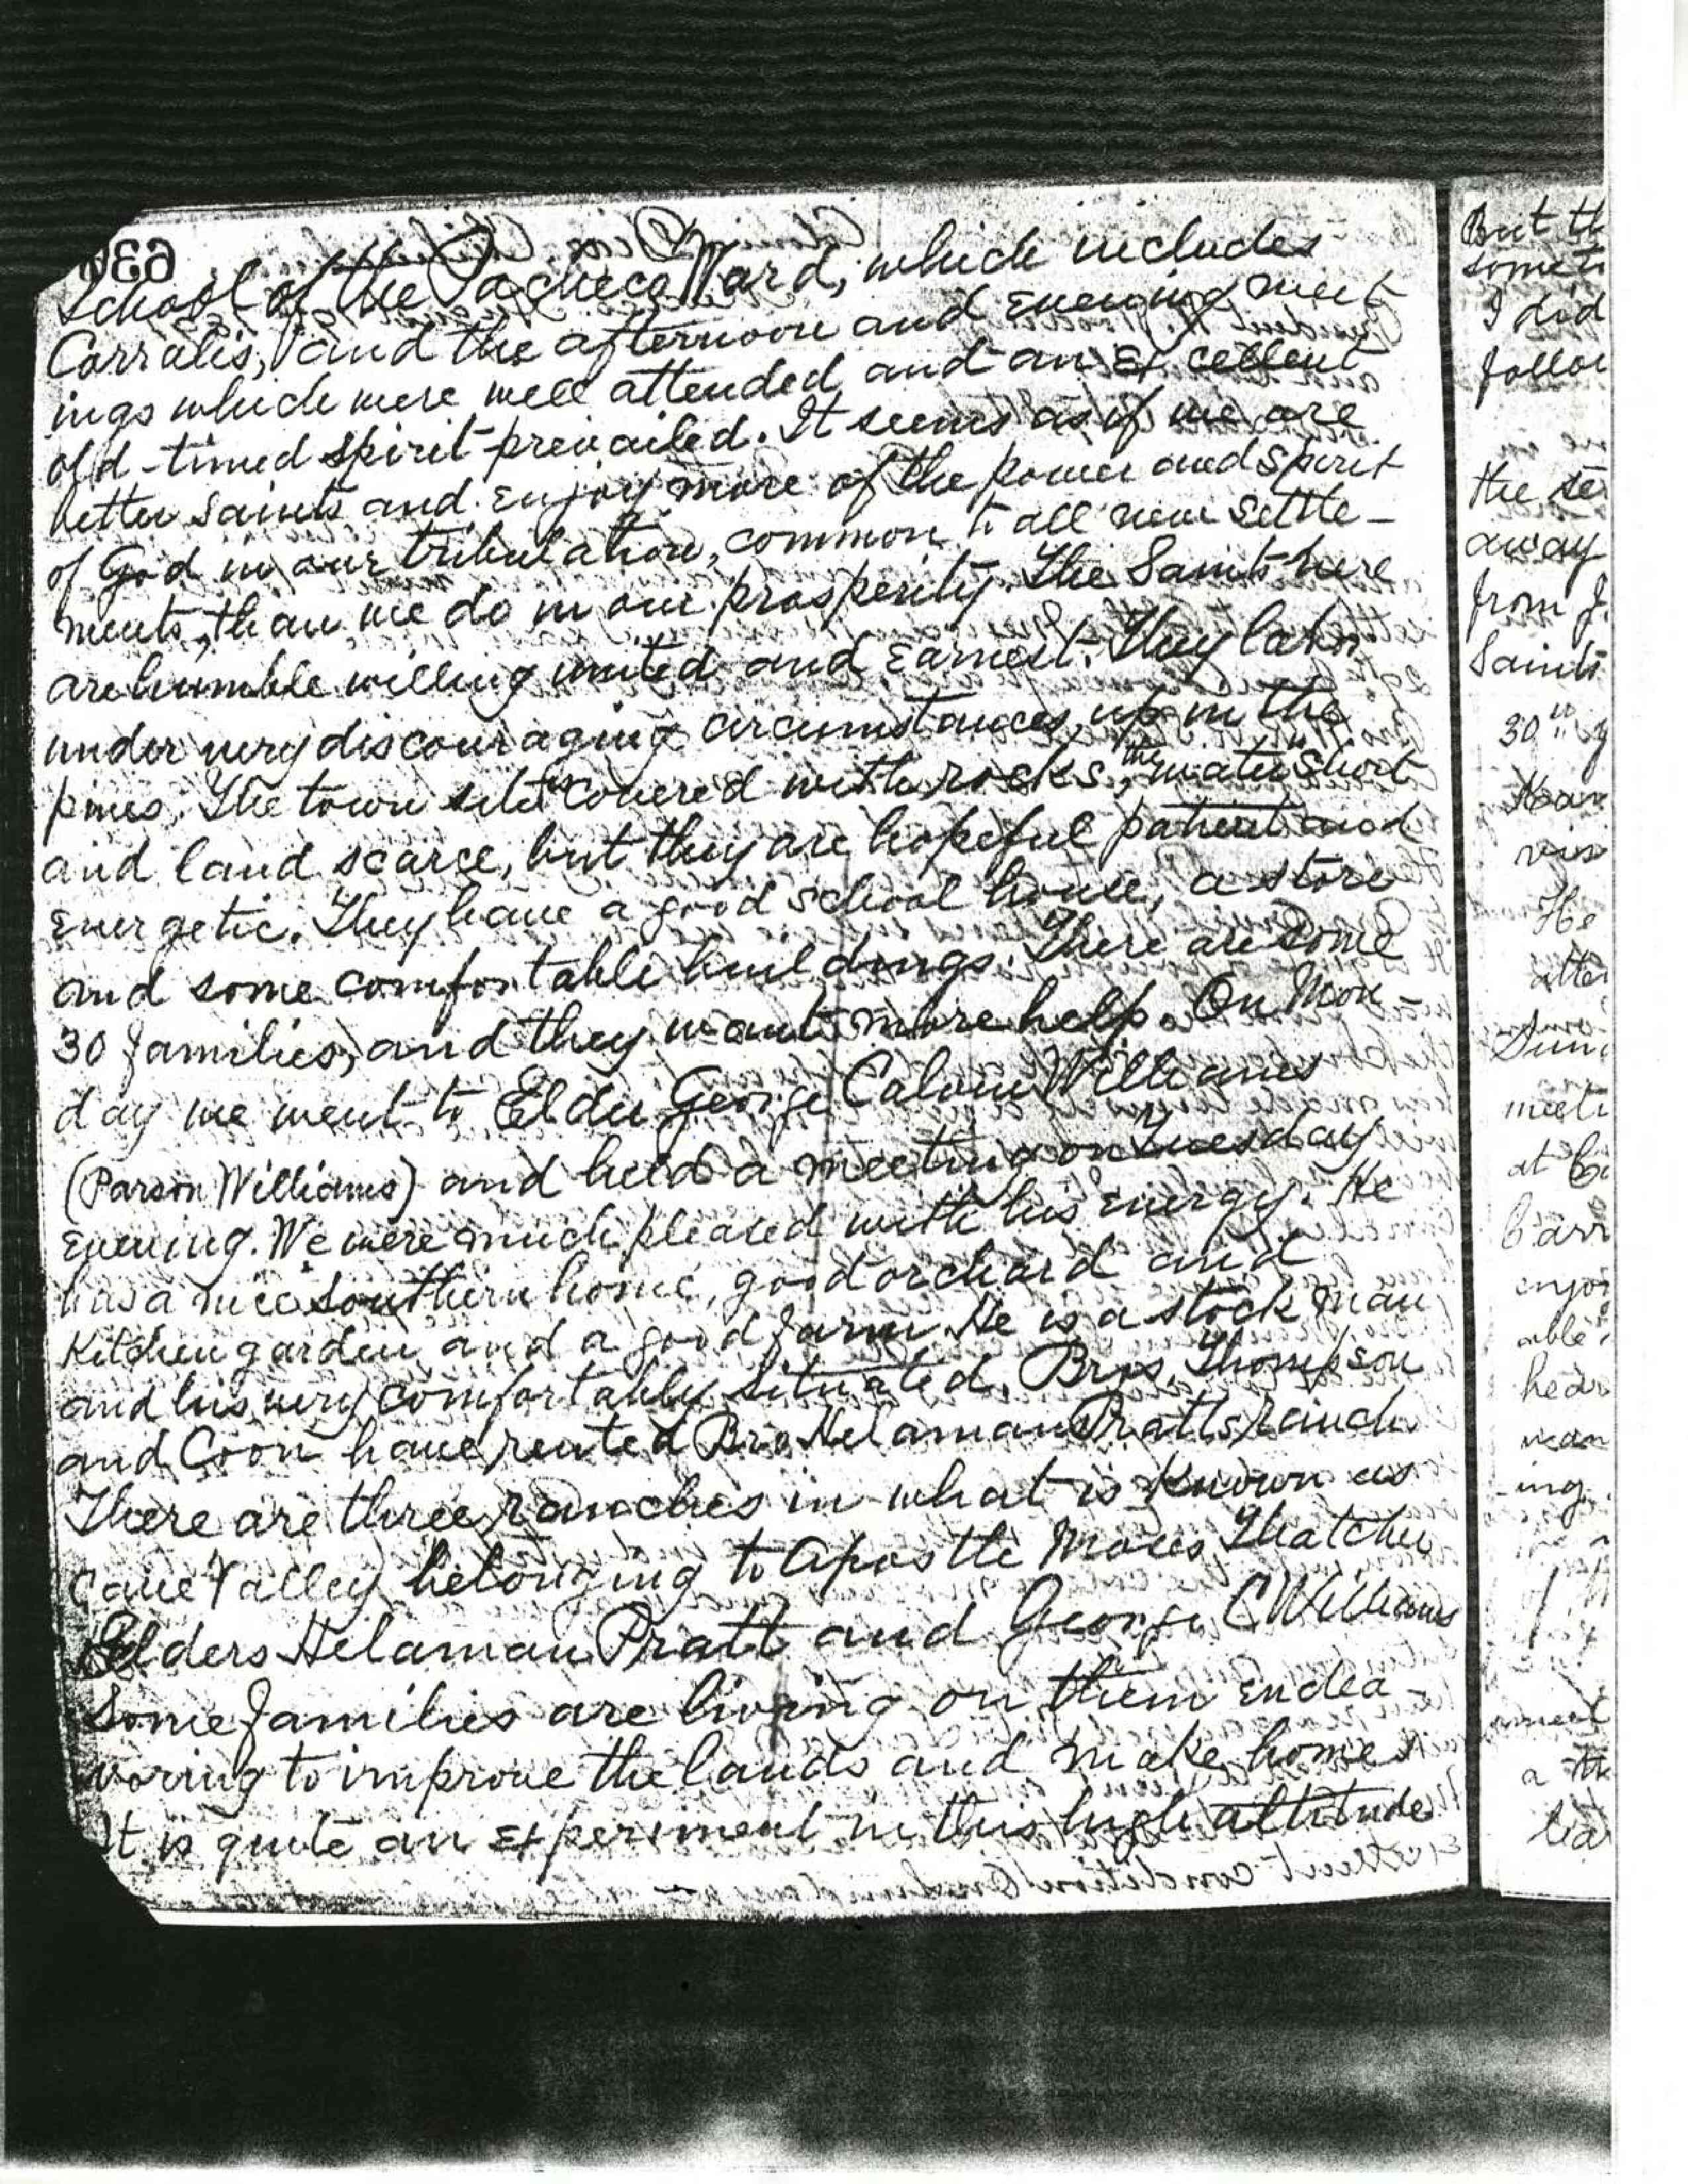 School of the Pacheco Ward, which includes
Corralis, and the afternoon and evening meet
ings which were well attended, and an excellent
old-timed spirit prevailed. It seems as if we are
better saints and enjoy more of the power and spirit
of God in our tribulation, common to all new settle-
ments, than we do in our prosperity. The Saints here
are humble willing united and earnest. They labor
under very discouraging circumstances, up in the
pines. The town site is covered with rocks, the water short
and land scarce, but they are hopeful patient and
energetic. They have a good school house, a store
and some comfortable buildings. There are some
30 families, and they want more help. On Mon-
day we went to Elder George Calvin Williams
(Parson Williams) and held a meeting on Tuesday
evening. We were much pleased with his energy. He
has a nice southern home, good orchard and
Kitchen garden and a good farm. He is a stock man
and his very comfortably situated. Bros. Thompson
and Coon have rented Bro Helaman Pratts ranch.
There are three ranches in what is known as
Cave Valley belonging to Apostle Moses Thatcher
Elders Helaman Pratt and George C Williams
Some families are living on them endea-
voring to improve the lands and make homes
It is quite an experiment in this high altitude
But th
somet
I did
follow
the se
away
from J.
Saints
30"
vis
He
atten
meeti
at C
Carr
enjo
able
hear
ing.
meet
a th